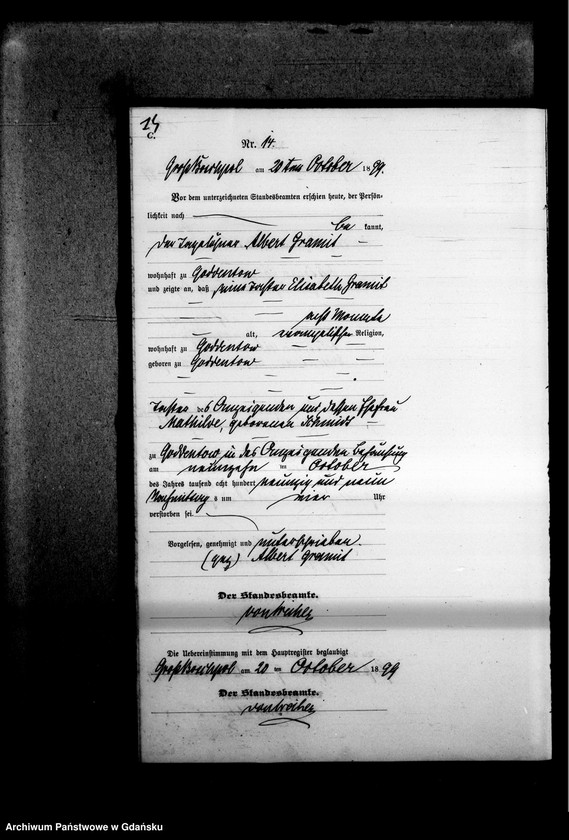 14
C.
Nr. 14.
am 20ten October 1899.
Vor dem unterzeichneten Standesbeamten erschien heute, der Persön-
lichkeit nach
be kannt,
der Tagelöhner Albert Gramit
wohnhaft zu Goddentow
und zeigte an, daß seine Tochter Elisabeth Gramit
acht Monate
alt, evangelischer Religion,
wohnhaft zu Goddentow
geboren zu Goddentow
Tochter des Anzeigenden und dessen Ehefrau
Mathilde, geborenen Schmidt
zu Goddentow, in des Anzeigenden Behausung
am neunzehn ten October
des Jahres tausend acht hundert neunzig und neun
Nachmittags um vier Uhr
verstorben sei.
Vorgelesen, genehmigt und unterschrieben.
(gez) Albert Gramit
Der Standesbeamte.
Die Uebereinstimmung mit dem Hauptregister beglaubigt
am 20 ten October 1899
Der Standesbeamte.
Archiwum Państwowe w Gdańsku